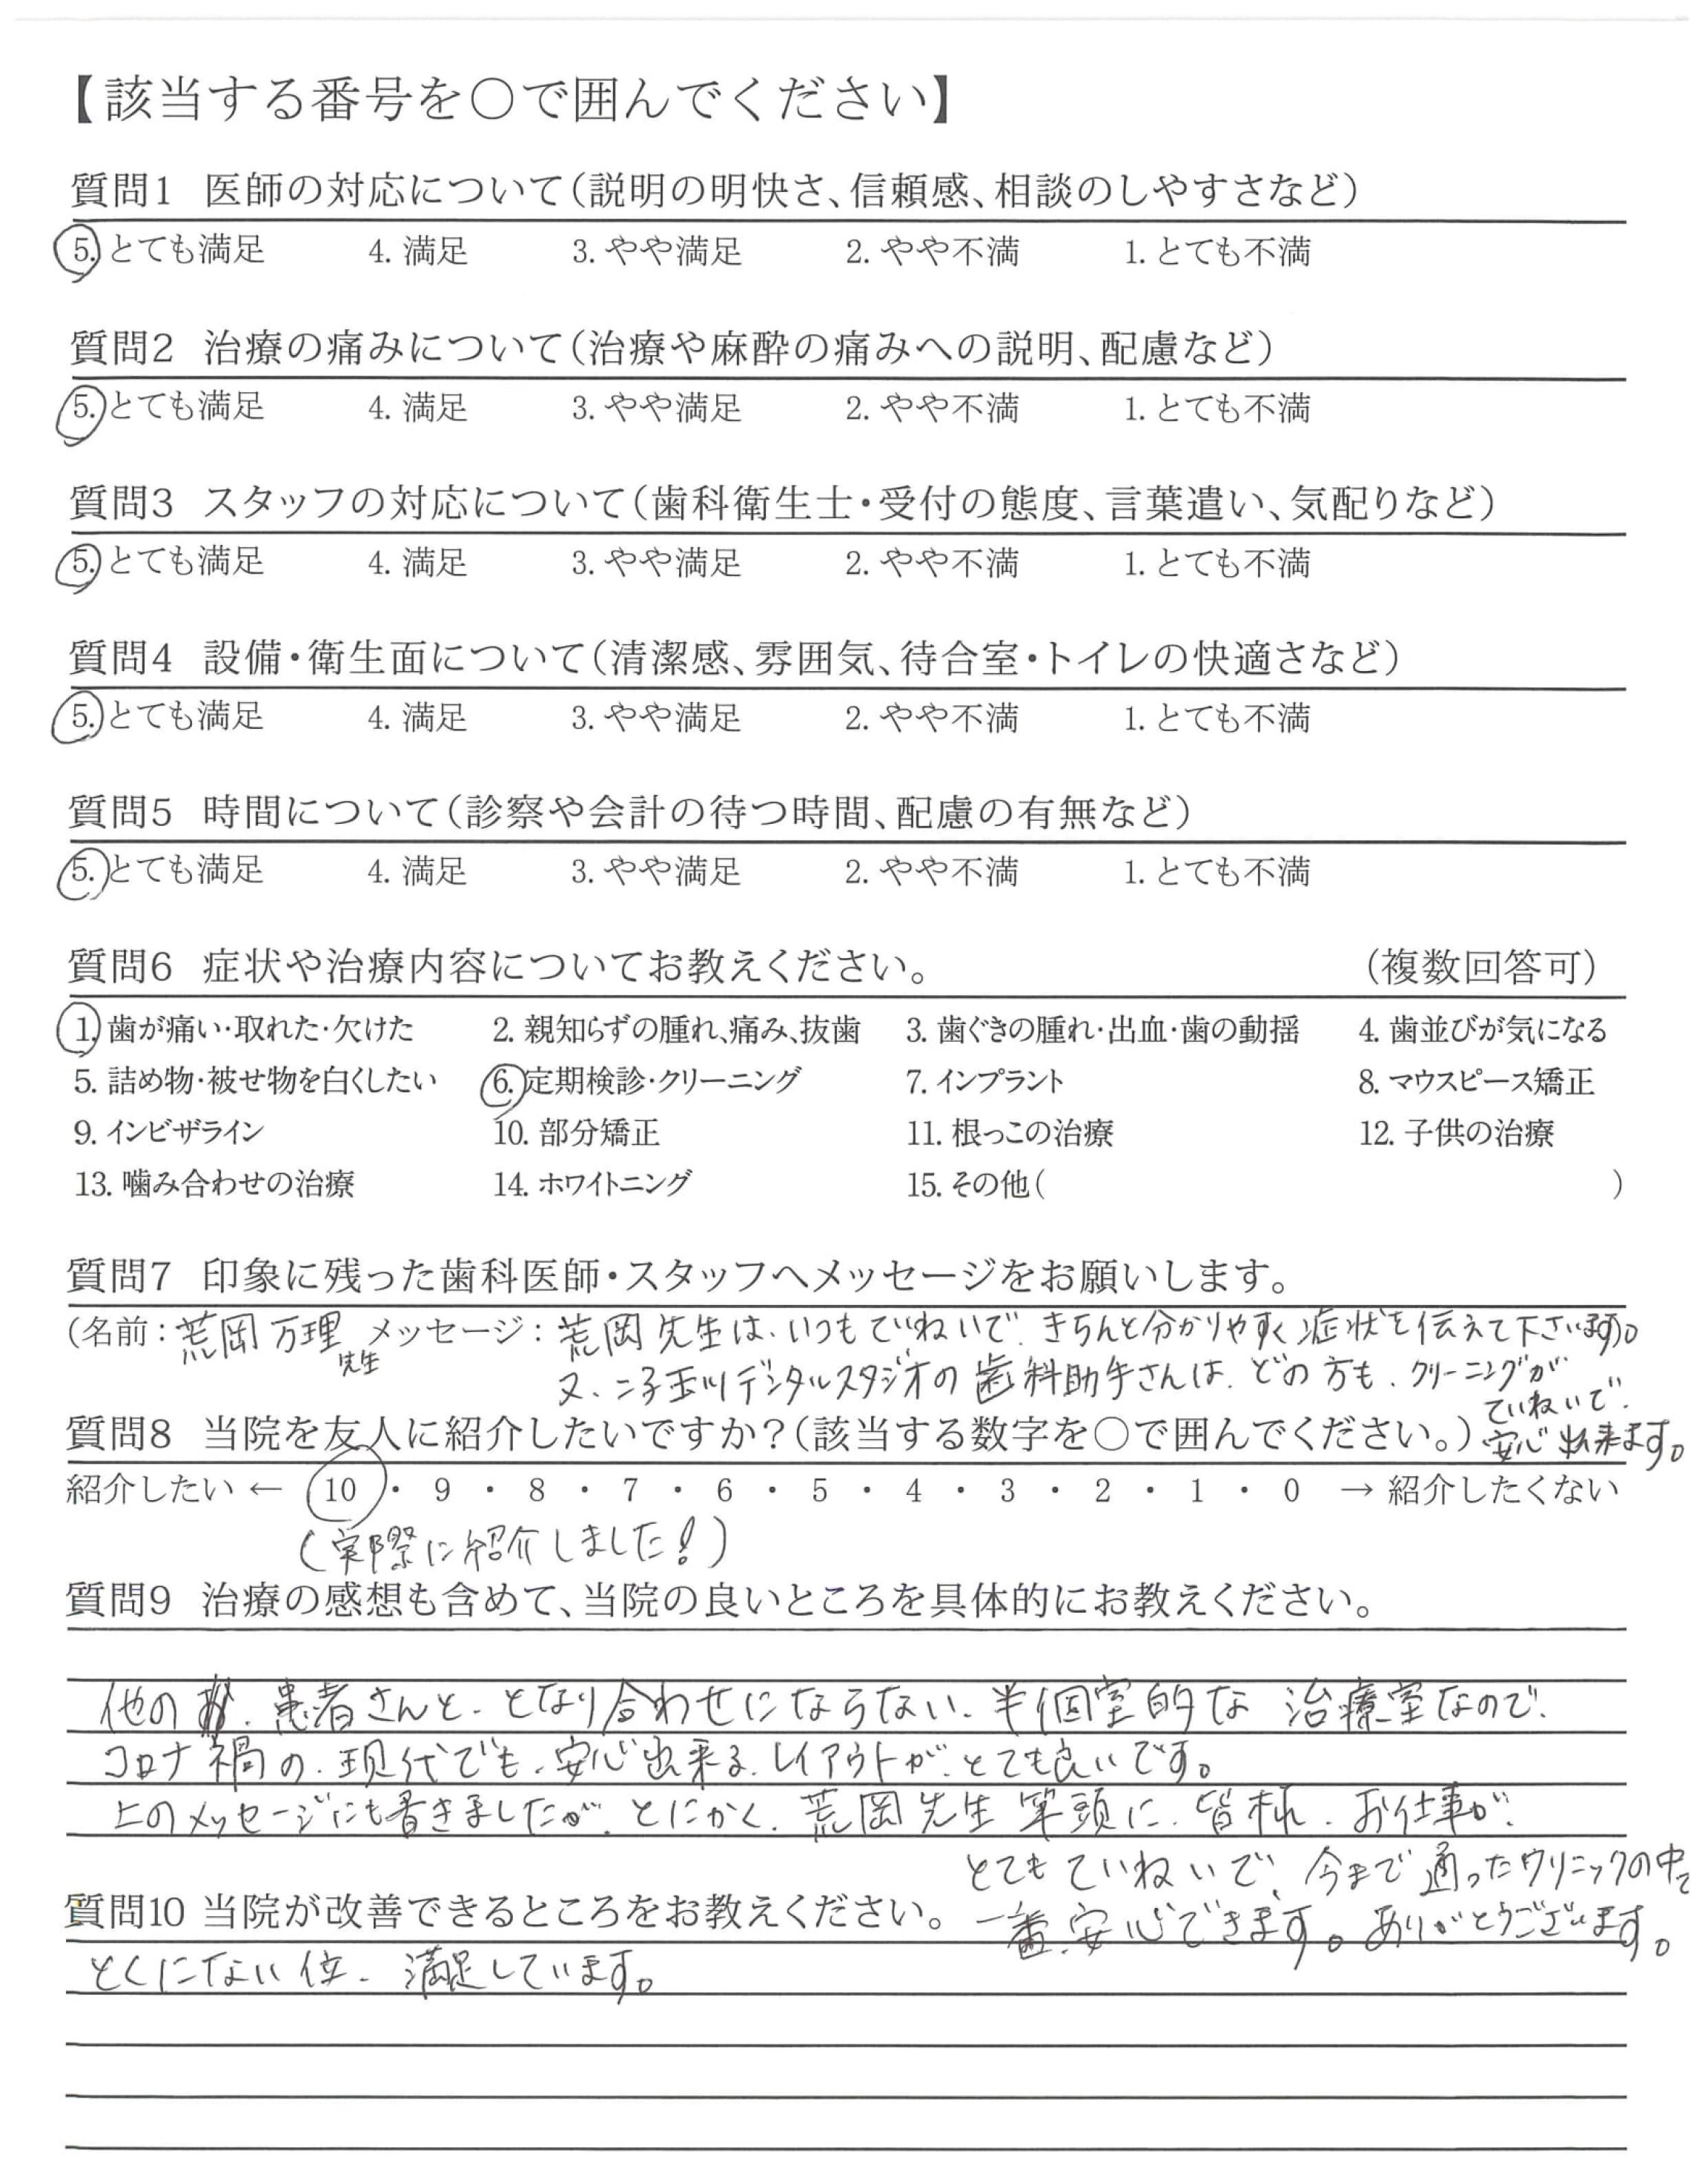 【該当する番号を○で囲んでください】
質問1 医師の対応について(説明の明快さ、信頼感、相談のしやすさなど)
5. とても満足 4. 満足 3. やや満足 2. やや不満 1. とても不満
質問2 治療の痛みについて(治療や麻酔の痛みへの説明、配慮など)
5. とても満足 4. 満足 3. やや満足 2. やや不満 1. とても不満
質問3 スタッフの対応について(歯科衛生士・受付の態度、言葉遣い、気配りなど)
5. とても満足 4. 満足 3. やや満足 2. やや不満 1. とても不満
質問4 設備・衛生面について(清潔感、雰囲気、待合室・トイレの快適さなど)
5. とても満足 4. 満足 3. やや満足 2. やや不満 1. とても不満
質問5 時間について(診察や会計の待つ時間、配慮の有無など)
5. とても満足 4. 満足 3. やや満足 2. やや不満 1. とても不満
質問6 症状や治療内容についてお教えください。 (複数回答可)
1. 歯が痛い・取れた・欠けた 2. 親知らずの腫れ、痛み、抜歯 3. 歯ぐきの腫れ・出血・歯の動揺 4. 歯並びが気になる
5. 詰め物・被せ物を白くしたい 6. 定期検診・クリーニング 7. インプラント 8. マウスピース矯正
9. インビザライン 10. 部分矯正 11. 根っこの治療 12. 子供の治療
13. 噛み合わせの治療 14. ホワイトニング 15. その他( )
質問7 印象に残った歯科医師・スタッフへメッセージをお願いします。
(名前：荒岡万理先生 メッセージ：荒岡先生は、いつもていねいで、きちんと分かりやすく症状を伝えて下さいます)。
又、二子玉川デンタルスタジオの歯科助手さんは、どの方も、クリーニングが
ていねいで、
安心出来ます。
質問8 当院を友人に紹介したいですか？(該当する数字を○で囲んでください。)
紹介したい ← 10 ・ 9 ・ 8 ・ 7 ・ 6 ・ 5 ・ 4 ・ 3 ・ 2 ・ 1 ・ 0 → 紹介したくない
(実際に紹介しました！)
質問9 治療の感想も含めて、当院の良いところを具体的にお教えください。
他の患者さんと、となり合わせにならない、半個室的な治療室なので、
コロナ禍の、現代でも、安心出来る、レイアウトが、とても良いです。
上のメッセージにも書きましたが、とにかく、荒岡先生筆頭に、皆様、お仕事が、
とてもていねいで、今まで通ったクリニックの中で
一番、安心できます。ありがとうございます。
質問10 当院が改善できるところをお教えください。
とくにない位、満足しています。